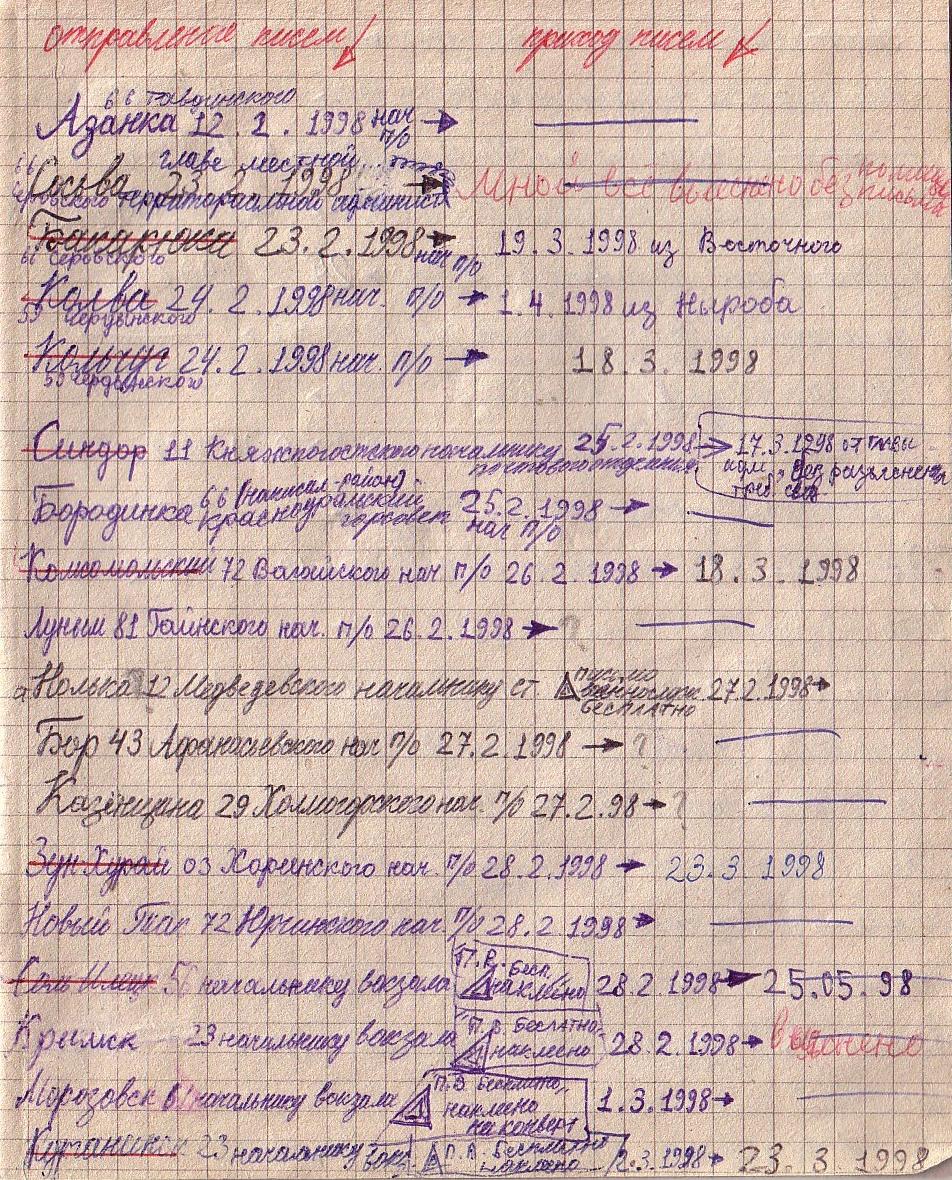 отправление писем приход писем
66 Тавдинского
Азанка 12.2.1998 нач п/о
66 главе местной
Сосьва 23.2.1998 Мной всё выяснено без
Серовского территориальной
23.2.1998 нач п/о 19.3.1998 из Восточного
66 Серовского
Колва 24.2.1998 нач. п/о 1.4.1998 из Ныроба
59 Чердынского
Кольчуг 24.2.1998 нач. п/о 18.3.1998
59 Чердынского
Синдор 11 Княжпогостского начальнику 25.2.1998 17.3.1998 от главы
почтового отделения адм., без разъяснения
66 (написал-район)
Бородинка Красноуральский горсовет 25.2.1998
нач п/о
Комсомольский 72 Вагайского нач п/о 26.2.1998 18.3.1998
Луным 81 Гайнского нач. п/о 26.2.1998 ?
Нолька ? 12 Медведевского начальнику ст письмо бесплатно 27.2.1998
Бор 43 Афанасьевского нач п/о 27.2.1998 ?
Казенщина 29 Холмогорского нач. п/о 27.2.98 ?
Зун Хурай 03 Хоринского нач. п/о 28.2.1998 23.3.1998
Новый Тап 72 Юргинского нач. п/о 28.2.1998
Соль Илецк 56 начальнику вокзала П.В. бесп. наклеено 28.2.1998 25.05.98
Крымск 23 начальнику вокзала П.В. бесплатно наклеено 28.2.1998 выяснено
Морозовск 61 начальнику вокзала П.В бесплатно, наклеено на конверт 1.3.1998
23 начальнику вокз. П.В. бесплатно наклеено 2.3.1998 23.3.1998